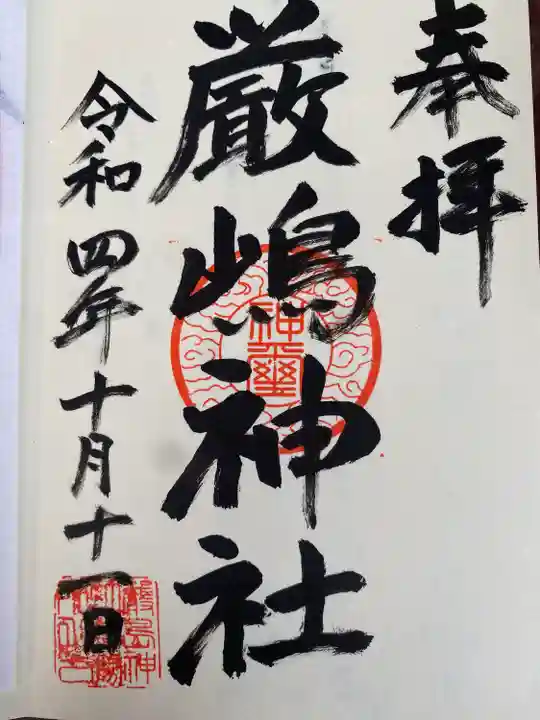 奉拝
厳嶋神社
令和四年十月十一日
神璽